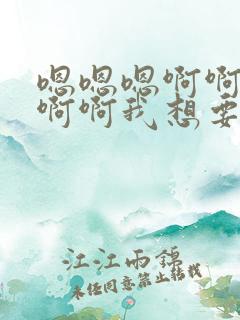 嗯嗯嗯啊啊
啊啊我想要
江江雨锦
未经同意禁止转载